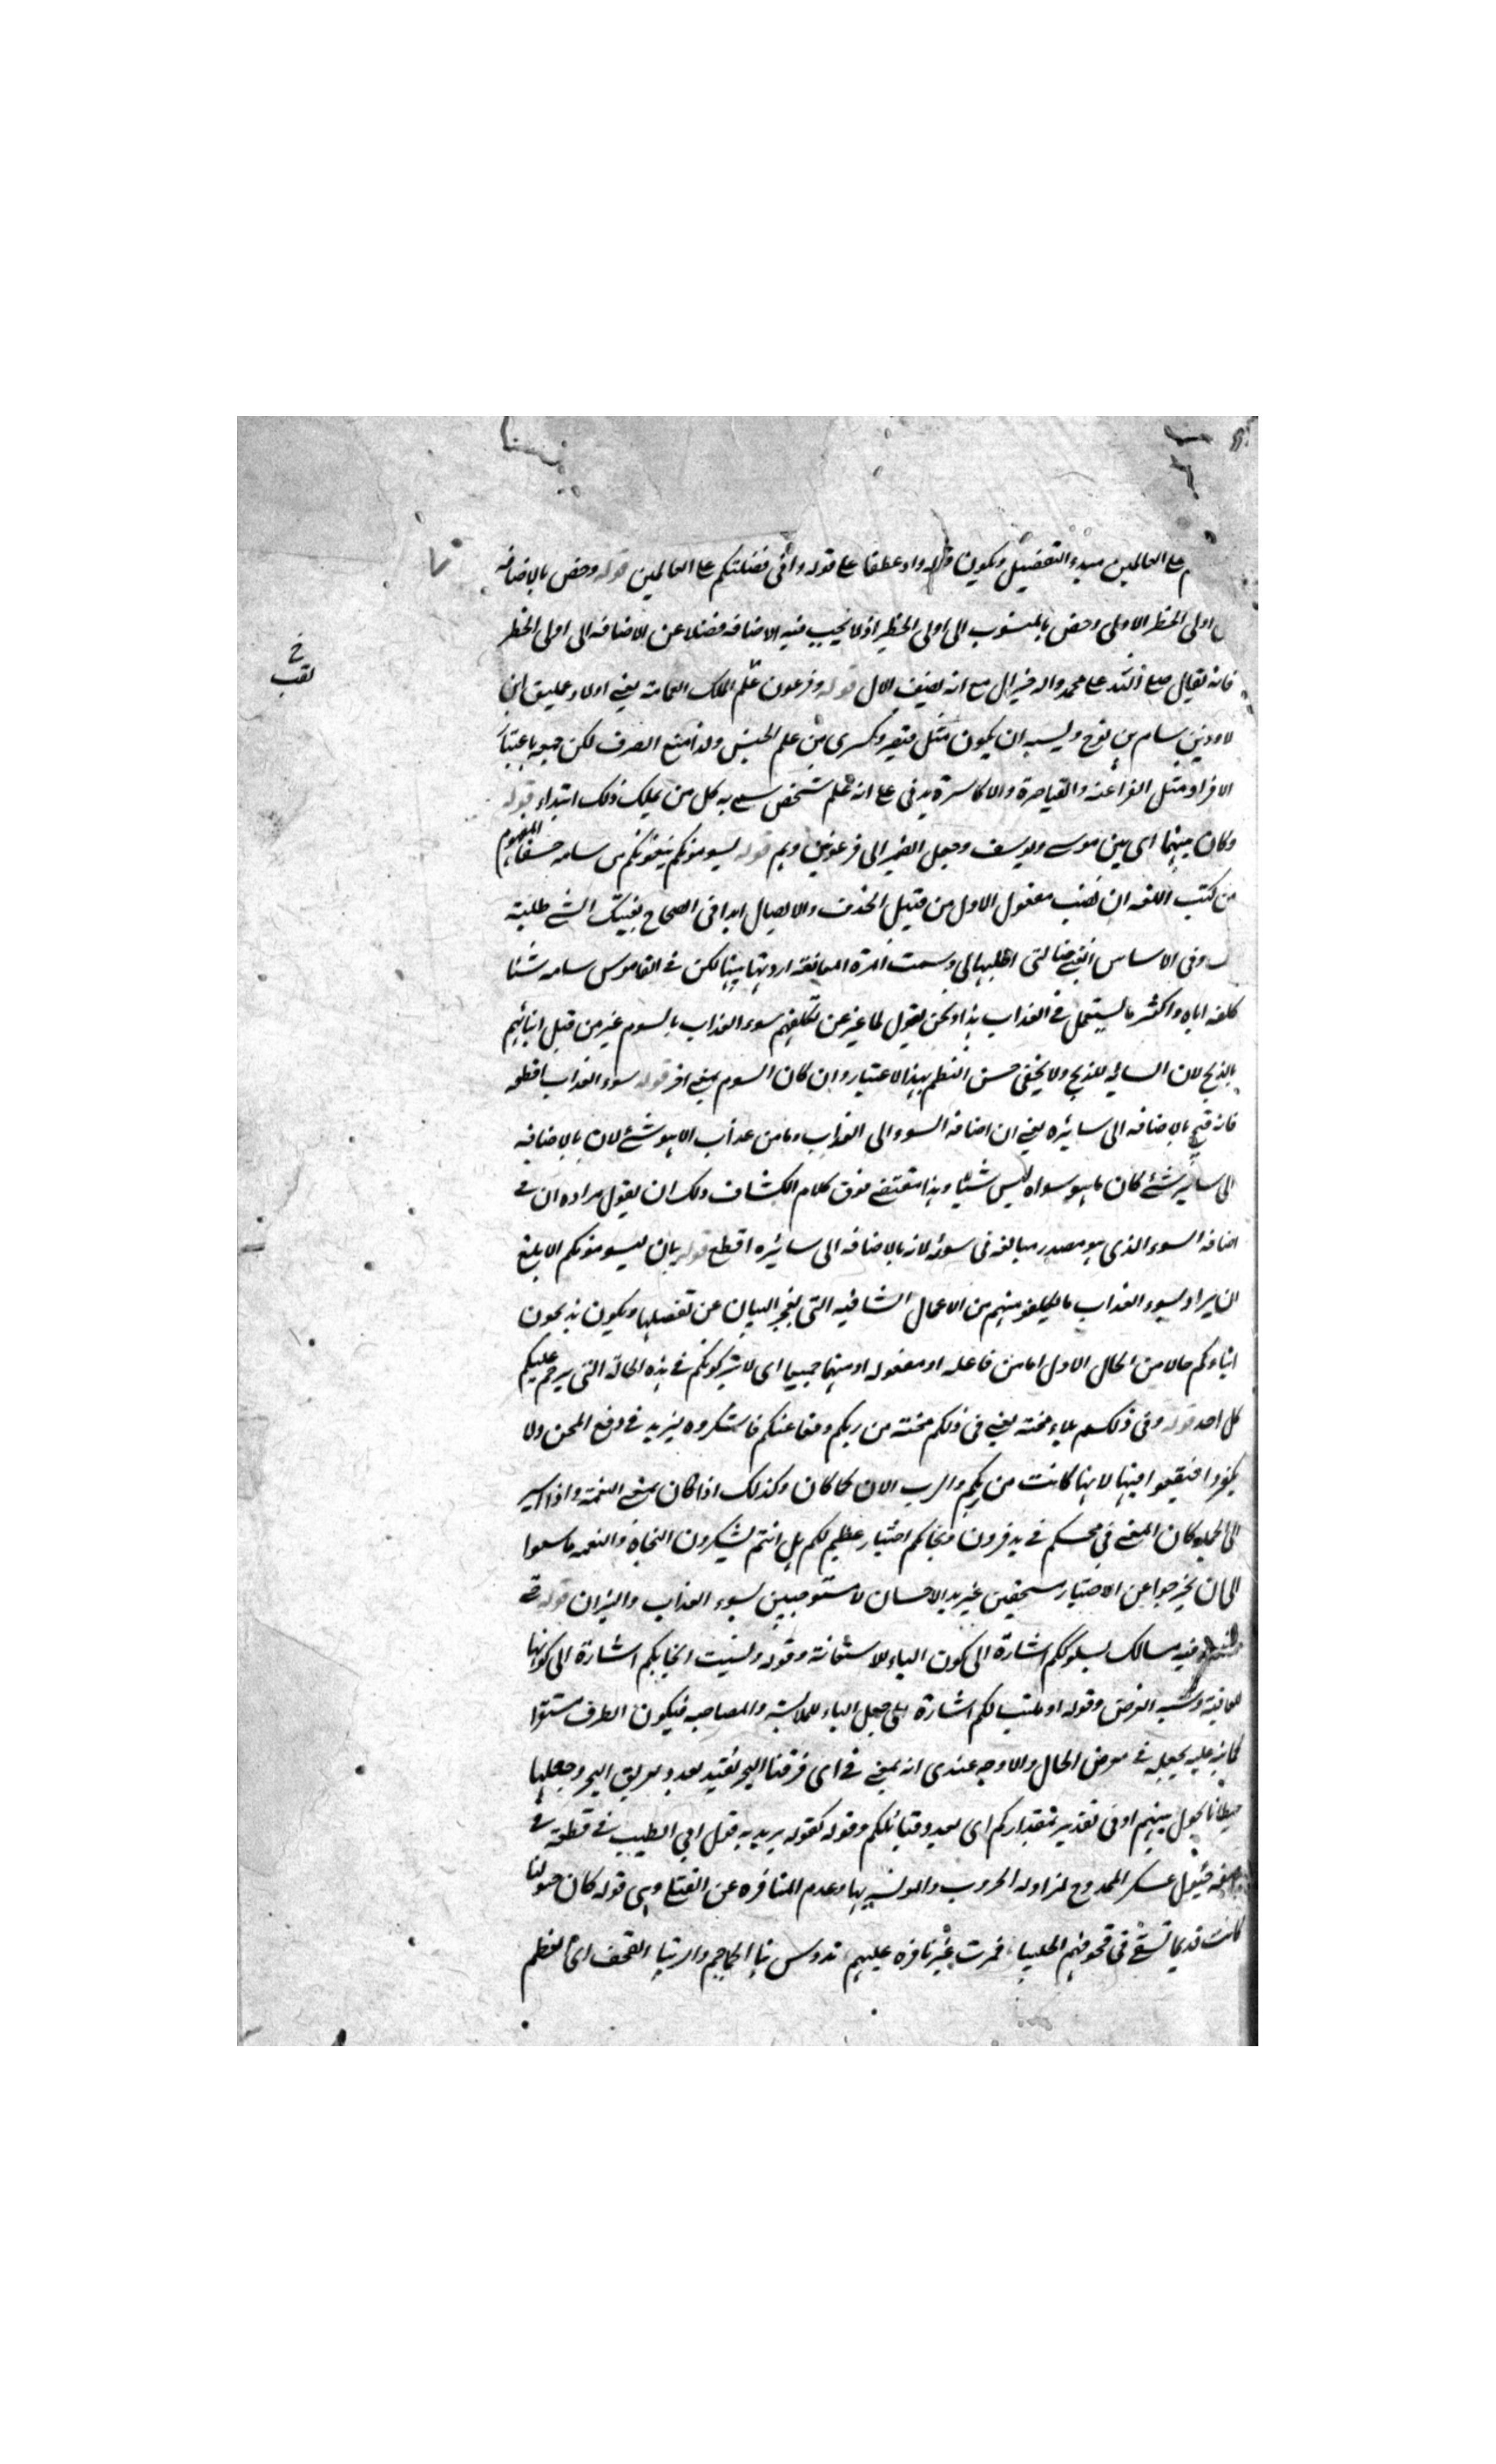 على العالمين مبدء التفضيل ويكون قوله واذ عطفا على قوله وانى فضلتكم على العالمين قوله وخص بالاضافه
اولى الخطر الاولى وخص بالمنسوب الى اولى الخطر اذ لا يجب فيه الاضافه فضلا عن الاضافه الى اولى الخطر
فانه يقال صلى الله على محمد واله خير ال مع انه لضيف الال قوله وفرعون علم لملك العمالقة يعنى اولاد عمليق ابن
لاوذ بن سام بن نوح ويشبه ان يكون مثل قيصر وكسرى من علم الجنس ولذا منع الصرف لكن جمعه باعتبار
الافراد مثل الفراعنه والقياصرة والاكاسرة على انه علم شخص سمى به كل من يملك ذلك ابتداء قوله
وكان بينهما اى بين موسى ويوسف وجعل الضمير الى فرعونين وهم قوله يسومونكم يبغونكم من سامه خسفا المفهوم
من كتب اللغه ان نصب مفعول الاول من قبيل الحذف والايصال ففى الصحاح بغيتك الشئ طلبته
لك وفى الاساس ابغنى ضالتى اطلبها لى وسمت المرة المعانقه اردتها منها لكن فى القاموس سامه شئا
كلفه اياه واكثر ما يستعمل فى العذاب هذا ونحن نقول لما عبر عن تكليفهم سوء العذاب بالسوم عبر من قبل ابنائهم
بالذبح لان السائم للذبح ولا يخفى حسن النظم بهذا الاعتبار وان كان السوم بمعنى اخر قوله سوء العذاب افظعه
فانه قبيح بالاضافه الى سائره يعنى ان اضافه السوء الى العذاب وما من عذاب الا هو شئ لان بالاضافه
الى سائر شئ كان ما هو سواه ليس شيئا وهذا مقتضى فوق كلام الكشاف ولك ان يقول مراده ان فى
اضافه السوء الذى هو مصدر مبالغه فى سوئه لانه بالاضافه الى سائره اقطع قوله بيان ليسومونكم الابلغ
ان يراد بسوء العذاب ما يكلفو منهم من الاعمال الشاقه التى يعجز البيان عن تفصيلها ويكون يذبحون
ابناءكم حالا من الحال الاول اما من فاعله او مفعوله او منهما جميعا اى لا يتركونكم فى هذه الحالة التى يرحم عليكم
كل احد قوله وفى ذلكم بلاء محنته يعنى فى ذلكم محنته من ربكم دفعا عنكم فاشكروه يزيد فى دفع المحن ولا
يكفروا فيقعوا فيها لانها كانت من ربكم والرب الان كما كان وكذلك اذا كان بمعنى النعمة واذا اشير
الى الجمله كان المعنى فى محنتكم فى يد فرعون ونجاتكم اختبار عظيم لكم هل انتم لشكرون النجاة والنعمه فاسعوا
الى ان يخرجوا عن الاختيار مستحقين لمزيد الاحسان لا مستوجبين لسوء العذاب والنيران قوله حتى
فيه مسالك بسلوككم اشارة الى كون الباء للاستعانة وقوله وبسبب انجائكم اشارة الى كونها
للعاقبة وشبه الغرض وقوله او ملتبسا بكم اشارة الى جعل الباء للملابسة والمصاحبه فيكون الظرف مستقرا
كما نبه عليه بجعله فى معرض الحال والاوجه عندى انه بمعنى فى اى فرقنا البحر بعدد طريق البحر وجعلها
حيطانا يحول بينهم او فى تقدير بمقداركم اى بعدد قبائلكم وقوله كقوله يريد به قول ابى الطيب فى قطعة فى
خيول عسكر الممدوح لمزاوله الحروب والمونسه بها وعدم المنافره عن القتلى وهى قوله كان خيولنا
كانت قديما تسقى فى قحوفهم الحليبا فمرت غير نافره عليهم تدوس بنا الجماجم والتريبا القحف اى العظم
لقب
خ